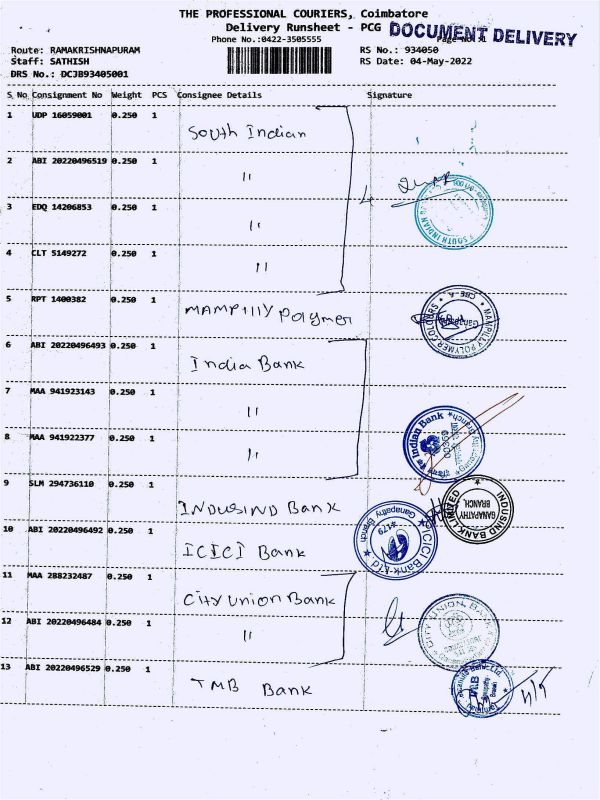 THE PROFESSIONAL COURIERS, Coimbatore
Delivery Runsheet - PCG
DOCUMENT DELIVERY
Phone No.:0422-3505555
Page No. 1
Route: RAMAKRISHNAPURAM
RS No.: 934050
Staff: SATHISH
RS Date: 04-May-2022
DRS No.: DCJB93405001
S No Consignment No Weight PCS Consignee Details Signature
1 UDP 16059001 0.250 1 South Indian
2 ABI 20220496519 0.250 1 11
3 EDQ 14206853 0.250 1 11
4 CLT 5149272 0.250 1 11
4
SOUTH INDIAN
5 RPT 1400382 0.250 1 MAMPIlly Polymer
MAMPILLY POLYMER COLOURS
CBE-
6 ABI 20220496493 0.250 1 India Bank
7 MAA 941923143 0.250 1 11
8 MAA 941922377 0.250 1 11
Indian Bank
9 SLM 294736110 0.250 1 INDUSIND Bank
INDUSIND BANK LIMITED
GANAPATHY
BRANCH
10 ABI 20220496492 0.250 1 ICICI Bank
ICICI Bank Ltd.
Ganapathy Branch
11 MAA 288232487 0.250 1 City Union Bank
12 ABI 20220496484 0.250 1 11
CITY UNION BANK
13 ABI 20220496529 0.250 1 TMB Bank